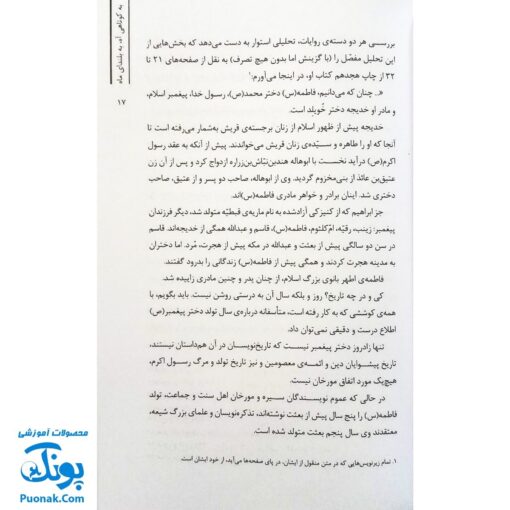 به کوتاهی آه، به بلندای ماه
۱۷
بررسی هر دو دسته‌ی روایات، تحلیلی استوار به دست می‌دهد که بخش‌هایی از
این تحلیل مفصّل را (با گزینش اما بدون هیچ تصرف) به نقل از صفحه‌های ۲۱ تا
۳۲ از چاپ هجدهم کتاب او، در اینجا می‌آورم:۱
«.. چنان که می‌دانیم، فاطمه(س) دختر محمد(ص)، رسول خدا، پیغمبر اسلام،
و مادر او خدیجه دختر خُویلد است.
خدیجه پیش از ظهور اسلام از زنان برجسته‌ی قریش به‌شمار می‌رفته است تا
آنجا که او را طاهره و سیّده‌ی زنان قریش می‌خواندند. پیش از آنکه به عقد رسول
اکرم(ص) درآید نخست با ابوهاله هندبن‌نبّاش‌بن‌زراره ازدواج کرد و پس از آن زن
عتیق‌بن عائذ از بنی‌مخزوم گردید. وی از ابوهاله، صاحب دو پسر و از عتیق، صاحب
دختری شد. اینان برادر و خواهر مادری فاطمه(س)اند.
جز ابراهیم که از کنیزکی آزادشده به نام ماریه‌ی قبطیّه متولد شد، دیگر فرزندان
پیغمبر: زینب، رقیّه، ام‌کلثوم، فاطمه(س)، قاسم و عبدالله همگی از خدیجه‌اند. قاسم
در سن دو سالگی پیش از بعثت و عبدالله در مکه پیش از هجرت، مُرد. اما دختران
به مدینه هجرت کردند و همگی پیش از فاطمه(س) زندگانی را بدرود گفتند.
فاطمه‌ی اطهر بانوی بزرگ اسلام، از چنان پدر و چنین مادری زاییده شد.
کی و در چه تاریخ؟ روز و بلکه سال آن به درستی روشن نیست. باید بگویم، با
همه‌ی کوششی که به کار رفته است، متأسفانه درباره‌ی سال تولد دختر پیغمبر(ص)
اطلاع درست و دقیقی نمی‌توان داد.
تنها زادروز دختر پیغمبر نیست که تاریخ‌نویسان در آن هم‌داستان نیستند،
تاریخ پیشوایان دین و ائمه‌ی معصومین و نیز تاریخ تولد و مرگ رسول اکرم،
هیچ‌یک مورد اتفاق مورخان نیست.
در حالی که عموم نویسندگان سیره و مورخان اهل سنت و جماعت، تولد
فاطمه(س) را پنج سال پیش از بعثت نوشته‌اند، تذکره‌نویسان و علمای بزرگ شیعه،
معتقدند وی سال پنجم بعثت متولد شده است.
۱. تمام زیرنویس‌هایی که در متن منقول از ایشان، در پای صفحه‌ها می‌آید، از خود ایشان است.
محصولات آموزشی
پونک
Puonak.Com